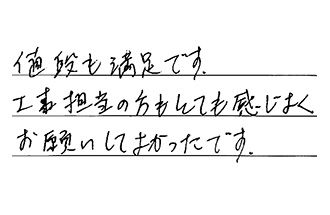 値段も満足です.
工事担当の方もとても感じよく
お願いしてよかったです.